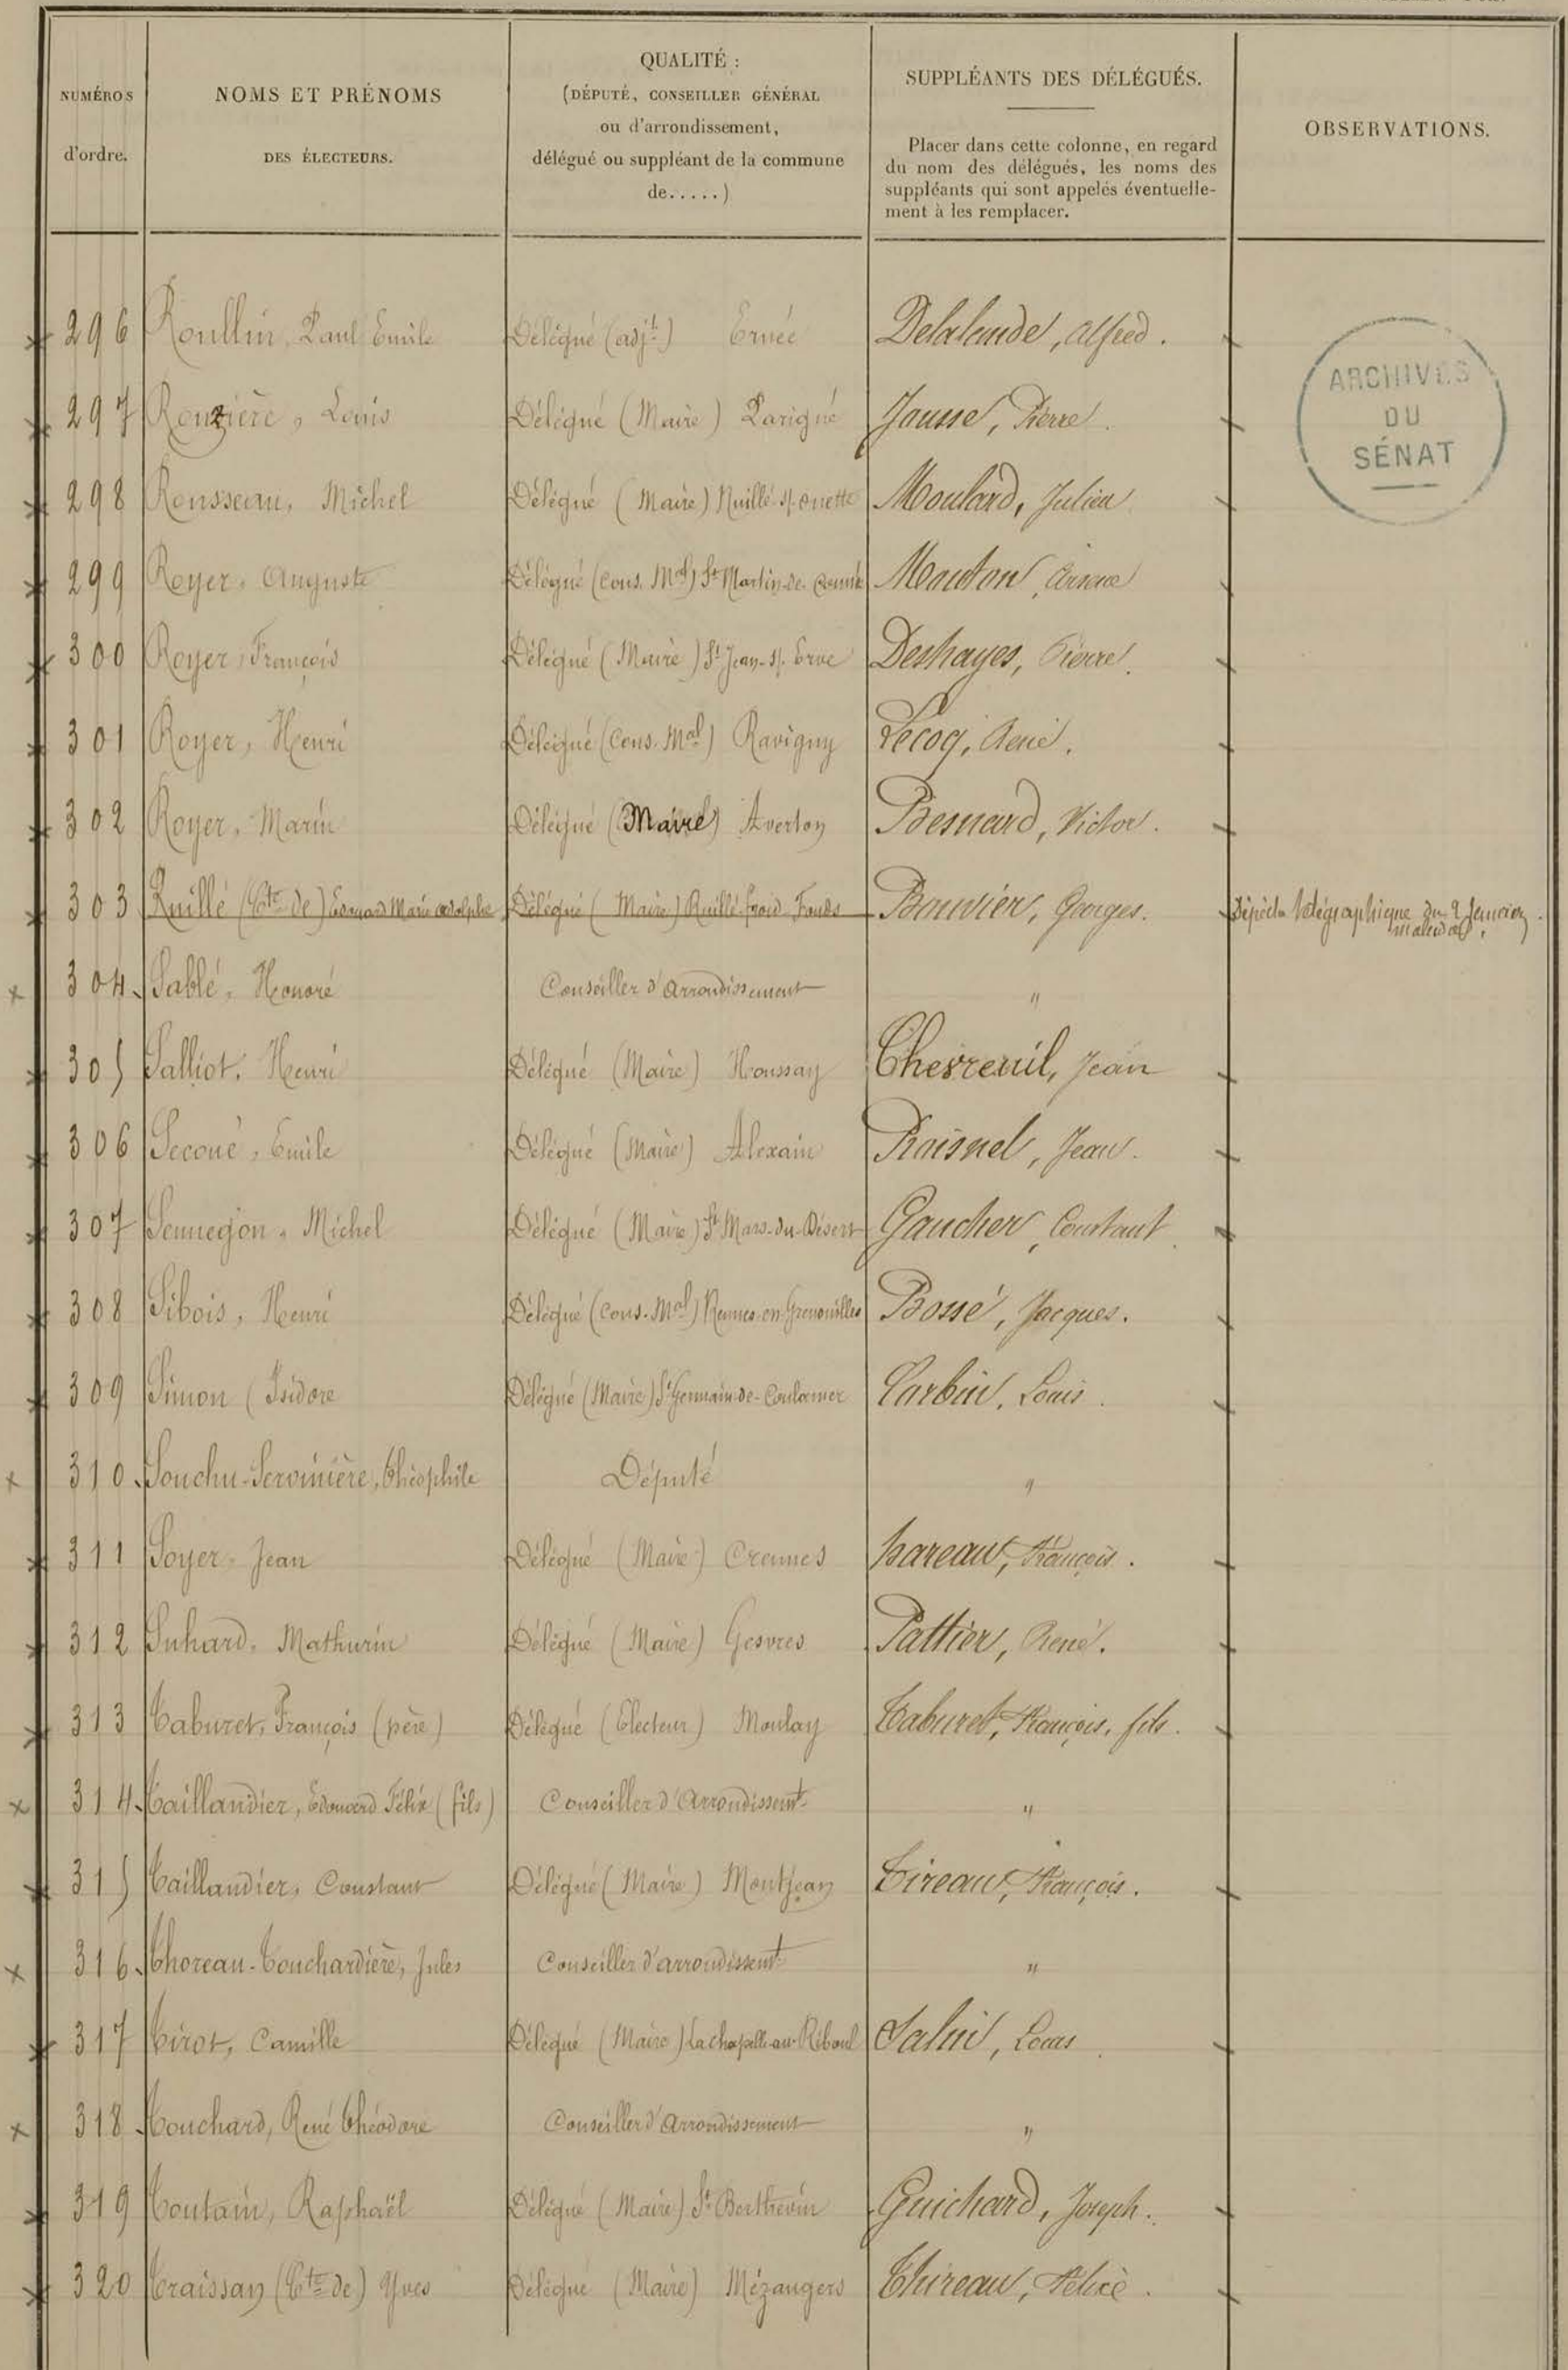 NUMÉROS d'ordre.
NOMS ET PRÉNOMS
DES ÉLECTEURS.
QUALITÉ :
(DÉPUTÉ, CONSEILLER GÉNÉRAL
ou d'arrondissement,
délégué ou suppléant de la commune
de.....)
SUPPLÉANTS DES DÉLÉGUÉS.
Placer dans cette colonne, en regard
du nom des délégués, les noms des
suppléants qui sont appelés éventuelle-
ment à les remplacer.
OBSERVATIONS.
ARCHIVES
DU
SÉNAT
296 Roullin, Paul Emile Délégué (adjt) Ernée Delalande, Alfred.
297 Rouzière, Louis Délégué (Maire) Parigné Jousse, Pierre.
298 Rousseau, Michel Délégué (Maire) Nuillé-s/-Ouette Moulard, Julien
299 Royer, Auguste Délégué (Cons. Mal) St Martin-de-Connée Mouton, Arsène
300 Royer, François Délégué (Maire) St Jean-s/-Erve Deshayes, Pierre.
301 Royer, Henri Délégué (Cons. Mal) Ravigny Lecoq, René.
302 Royer, Marin Délégué (Maire) Averton Besnard, Victor.
303 Ruillé (Cte de) Edouard Marie Adolphe Délégué (Maire) Ruillé-froid-Fonds Bouvier, Georges. Dépêche télégraphique du 2 Janvier.
malade
304 Sablé, Honoré Conseiller d'Arrondissement "
305 Salliot, Henri Délégué (Maire) Houssay Chevreuil, Jean
306 Secoué, Emile Délégué (Maire) Alexain Raisnel, Jean.
307 Sennegon, Michel Délégué (Maire) St Mars-du-Désert Gaucher, Constant
308 Sibois, Henri Délégué (Cons. Mal) Rennes-en-Grenouilles Bossé, Jacques.
309 Simon (Isidore Délégué (Maire) St Germain-de-Coulamer Corbin, Louis.
310 Souchu-Servinière, Théophile Député "
311 Soyer, Jean Délégué (Maire) Crennes Hareau, François.
312 Suhard, Mathurin Délégué (Maire) Gesvres Pattier, René.
313 Taburet, François (père) Délégué (Electeur) Moulay Taburet, François, fils.
314 Taillandier, Edouard Félix (fils) Conseiller d'Arrondissemt "
315 Taillandier, Constant Délégué (Maire) Montjean Tireau, François.
316 Thoreau-Touchardière, Jules Conseiller d'arrondissemt "
317 Tirot, Camille Délégué (Maire) La chapelle-au-Riboul Salin, Louis
318 Touchard, René Théodore Conseiller d'Arrondissement "
319 Toutain, Raphaël Délégué (Maire) St Berthevin Guichard, Joseph.
320 Traissan (Cte de) Yves Délégué (Maire) Mézangers Thireau, Félix.